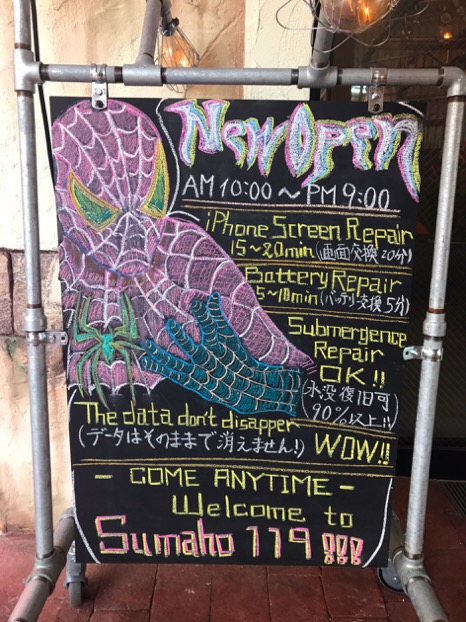 New Open
AM 10:00 ~ PM 9:00
iPhone Screen Repair
15~20min (画面交換20分)
Battery Repair
5~10min (バッテリ交換5分)
Submergence
Repair
OK!!
(水没復旧可
90%以上!!)
The data don't disapper
(データはそのままで消えません!) WOW!!
- COME ANYTIME -
Welcome to
Sumaho 119 !!!